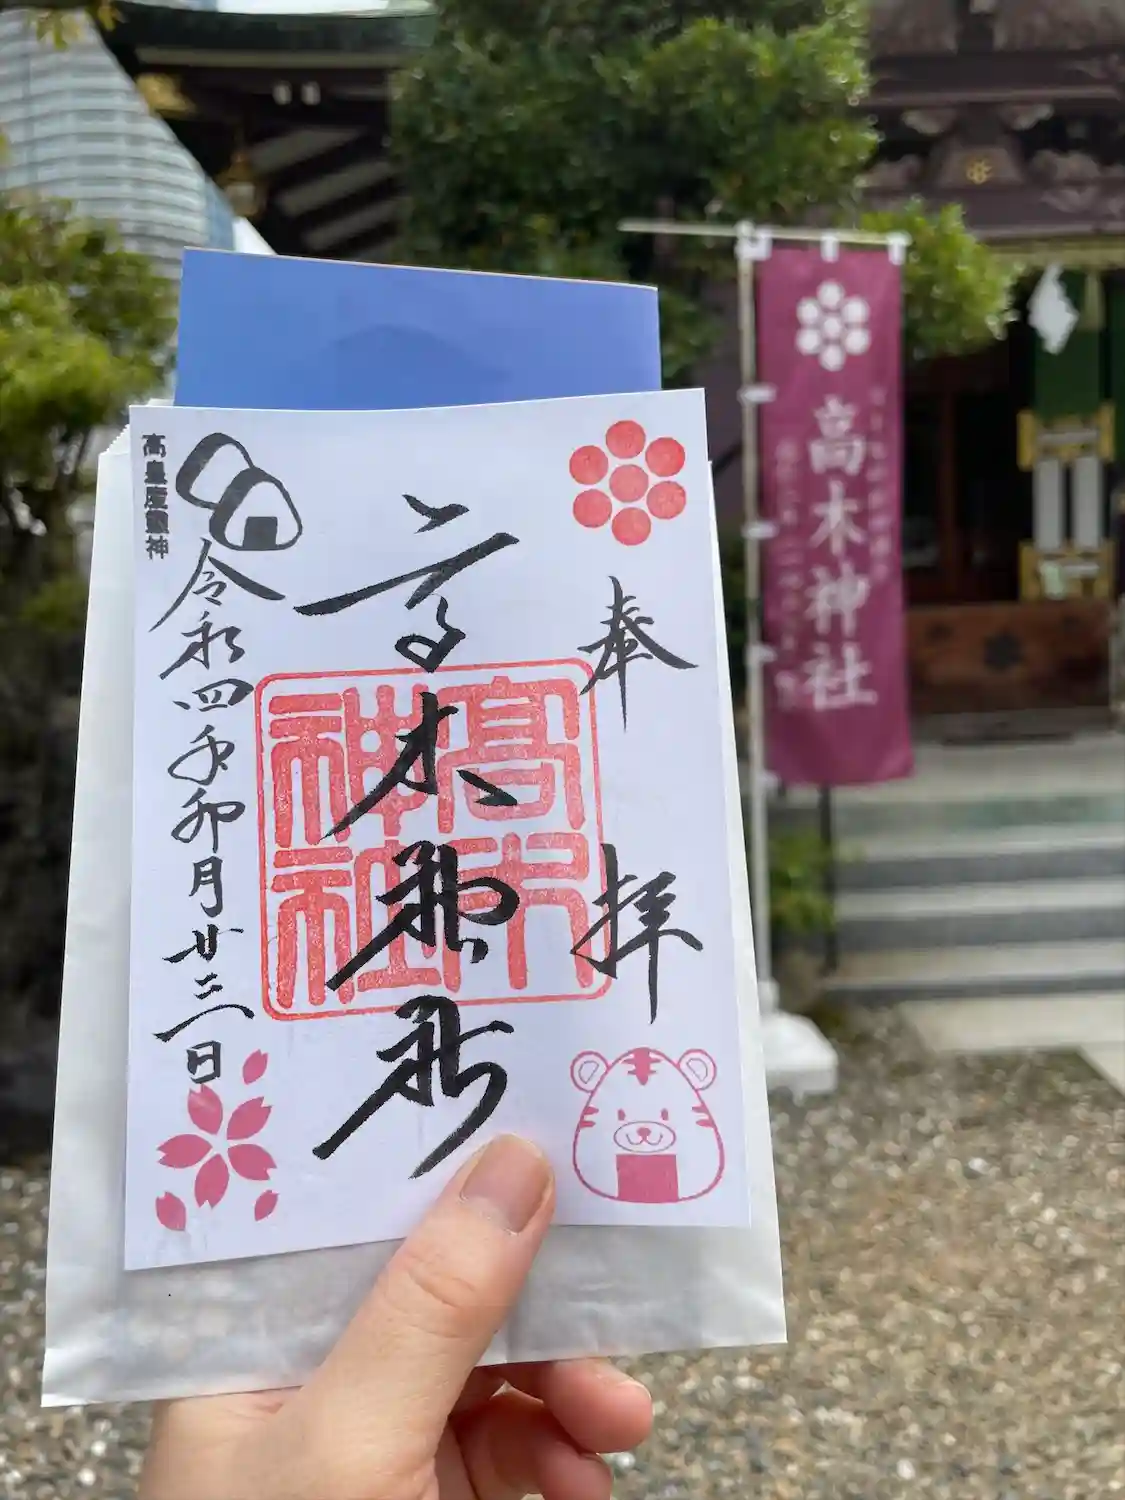 奉拝
高木神社
高木神社
令和四年卯月廿三日
高皇産靈神
高木神社